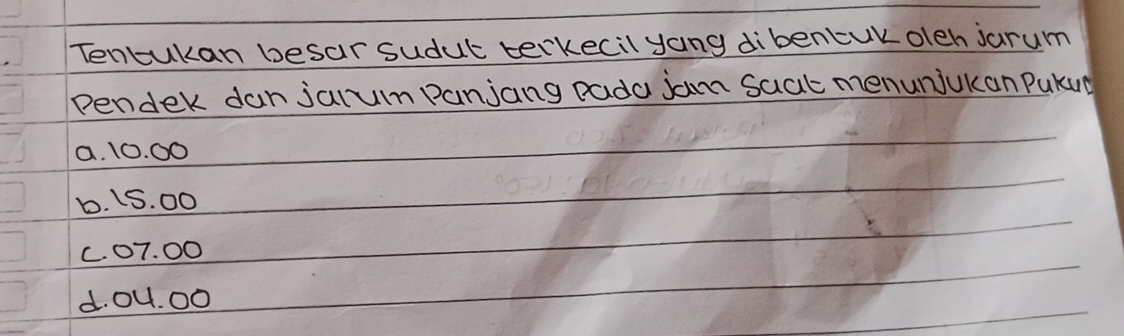 Tentukan besar sudut terkecil yang dibentuk oleh jarum
Pendek dan jarum Panjang Pada jam Saat menunjukan Pukul
a. 10.00
b. 15.00
c. 07.00
d. 04.00